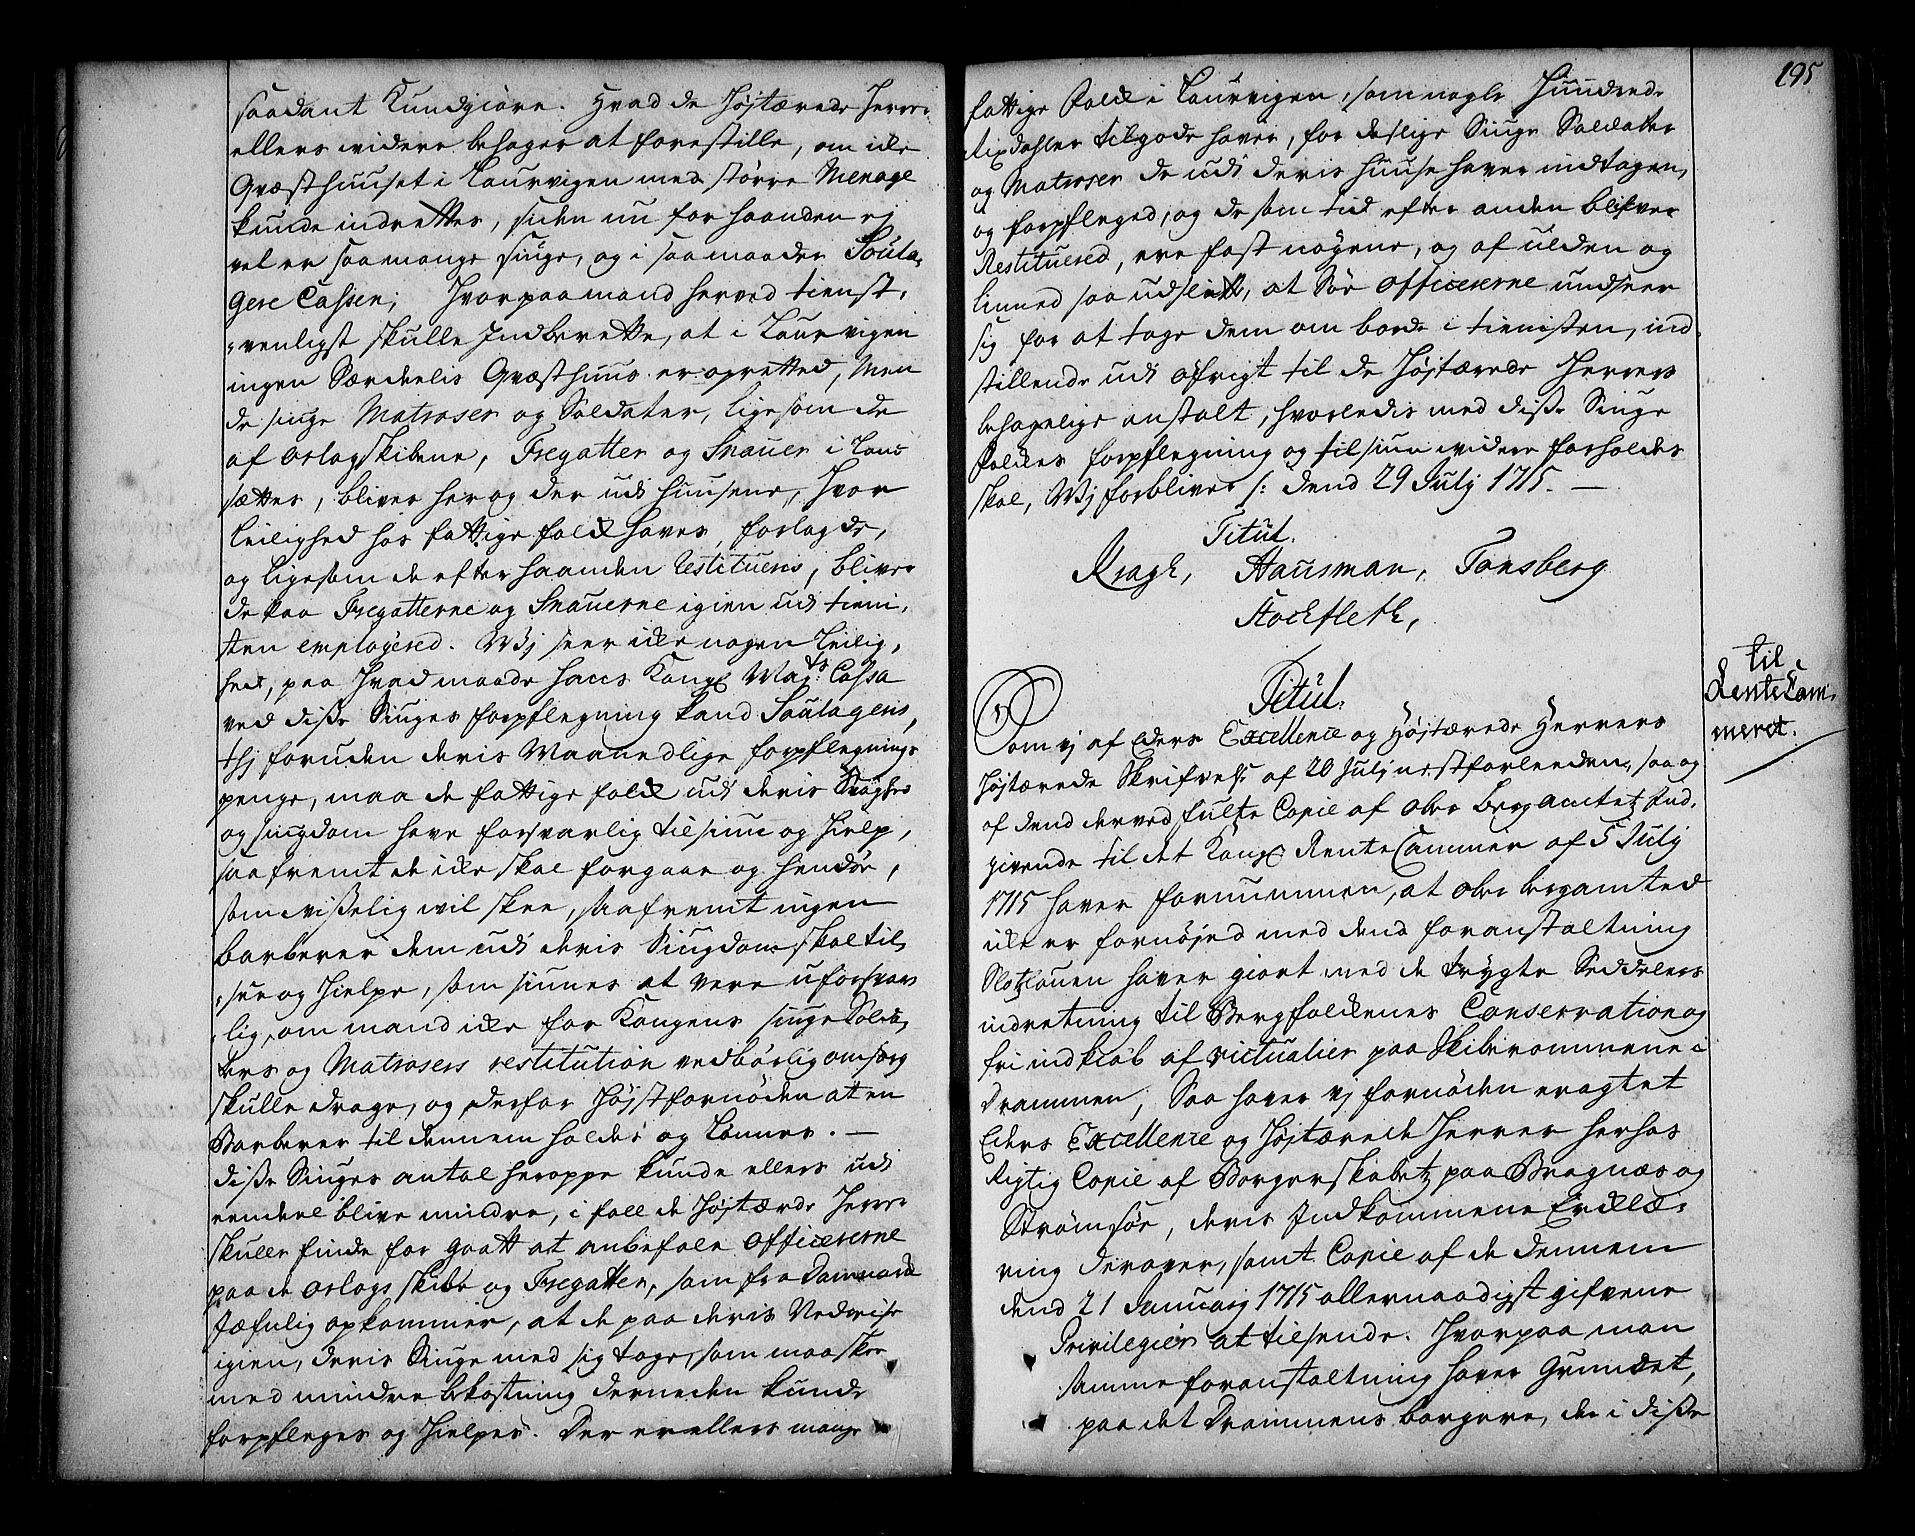 saadant Kundgiøre. Hvad de Højtærede Herrer
ellers videre behager at forestille, om icke
Qvæsthuuset i Laurvigen med større Menage
kunde indrettes, siden nu for haanden ej
vel er saa mange siuge, og i saa maader Soula-
gere Cassen; Hvorpaa mand herved tienst-
venligst skulle Indberette, at i Laurvigen
ingen Særdeelis Qvæsthuus er opretted, Men
de siuge Matroser og Soldater, ligesom de
af orlogskibene, Fregatter og Snauer i Land
sættes, bliver her og der udi huusene, hvor
Leilighed hos fattige folck haves, forlagde,
og ligesom de efterhaanden restitueris, bliver
de paa Fregatterne og Snauerne igien udi tieni-
sten employered. Wj seer icke nogen Leilig-
hed, paa hvad maade hans Kongl Maj:ts Cassa
ved disse Siuges forpflegning kand Soulageris,
thj foruden deris Maanedlige forpflegnings
penge, maa de fattige folck udi deris Svaghed
og siugdom have forsvarlig tilsiun og hielp,
saafremt de icke skal forgaae og hendøe,
som visselig vil skee, saafremt ingen
barberer dem udi deris Siugdom skal til-
see og hielpe, som siunes at være uforsvar-
lig, om mand icke for Kongens siuge Solda-
ters og Matrosers restitution vedbørlig omsorg
skulle drage, og derfor højstfornøden at en
Barberer til dennem holdes og Lønnes. —
disse Siuges antal heroppe kunde ellers udi
eendeel blive mindre, i fall de Højtærede Herrer
skulle finde for gaatt at anbefale officererne
paa de orlogs skibe og Fregatter, som fra Danmark
Jæfnlig opkommer, at de paa deris Nedreise
igien, deris Siuge med sig tage, som maaskee
med mindre bekostning derneden kunde
forpfleges og hielpes. Der er ellers mange
195
fattige Folck i Laurvigen, som nogle Hundrede
Rixdahler tilgode haver, for deslige Siuge Soldater
og Matroser de udi deris huuse haver indtagen,
og forpfleged, og de som tid efter anden blifver
Restituered, ere fast nøgene, og af ulden og
linned saa udslidte, at Søe officererne undseer
sig for at tage dem om borde i tienisten, ind-
stillende udi øfrigt til de Højtærede Herrers
behagelige anstalt, hvorledis med disse Siuge
folckes forpflegning og tilsiun videre forholdes
skal, Wj forbliver s: dend 29 Julj 1715. —
Titul.
Kragh, Hausman, Tonsberg
Stockfleth,
til
Rente Cam-
meret.
Titul.
Som vj af Eders Excellence og Højtærede Herrers
Højtærede Skrifvelse af 20 Julj nestforleeden, saa og
af dend derved fulte Copie af ober Bergamtetz Ind-
givende til det Kongl Rente Cammer af 5 Julj
1715 haver fornummen, at ober bergamted
icke er fornøjed med dend foranstaltning
Slotzlouen haver giort med de trygte Seddelers
indretning til Bergfolckenes Conservation og
fri indkiøb af victualier paa Skiberommene i
Drammen, Saa haver vj fornøden eragtet
Eders Excellence og Højtærede Herrer herhos
Rigtig Copie af Borgerskabetz paa Bragnæs og
Strømsøe, deris Indkommene Ercklæ-
ring derover, samt Copie af de dennem
dend 21 Januarj 1715 allernaadigst gifvene
Privilegier at tilsende. Hvorpaa man
samme foranstaltning haver Grundet,
paa det Drammens borgere, der i disse